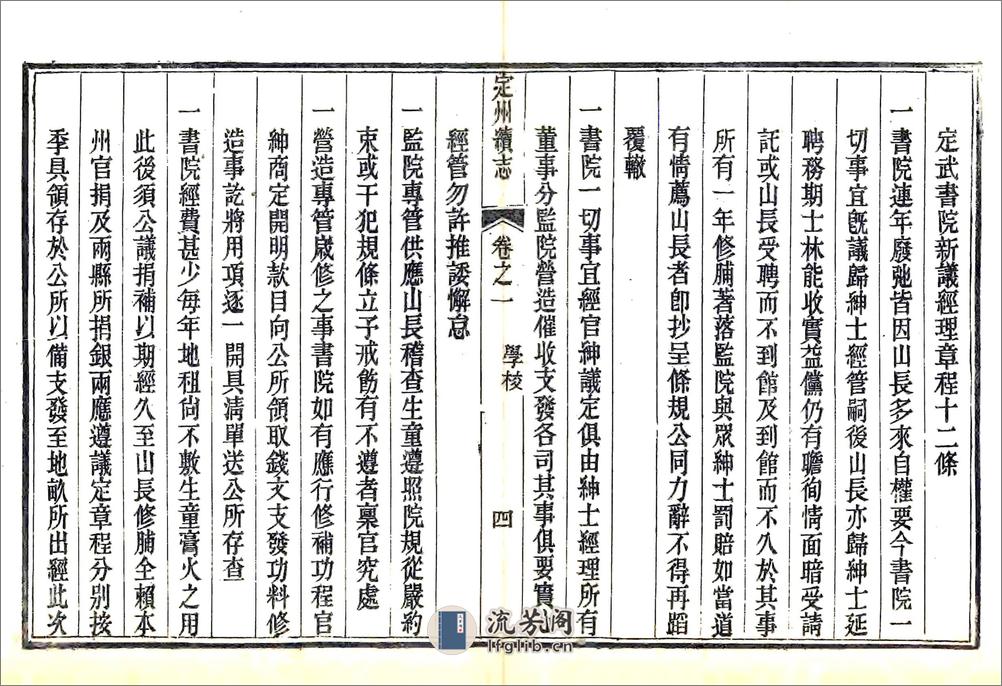 定武書院新議經理章程十二條
一書院連年廢弛皆因山長多來自權要今書院一
切事宜既議歸紳士經管嗣後山長亦歸紳士延
聘務期士林能收實益儻仍有瞻徇情面暗受請
託或山長受聘而不到館及到館而不久於其事
所有一年修脯著落監院與眾紳士罰賠如當道
有情薦山長者卽抄呈條規公同力辭不得再蹈
覆轍
一書院一切事宜經官紳議定俱由紳士經理所有
董事分監院營造催收支發各司其事俱要實
定州續志
卷之一
學校
四
經管勿許推諉懈怠
一監院專管供應山長稽查生童遵照院規從嚴約
束或干犯規條立予戒飭有不遵者稟官究處
一營造專管歲修之事書院如有應行修補功程官
紳商定開明款目向公所領取錢文支發功料修
造事訖將用項逐一開具清單送公所存查
一書院經費甚少每年地租尙不敷生童膏火之用
此後須公議捐補以期經久至山長修脯全賴本
州官捐及兩縣所捐銀兩應遵議定章程分別按
季具領存於公所以備支發至地畝所出經此次
流芳阁
lfglib.cn